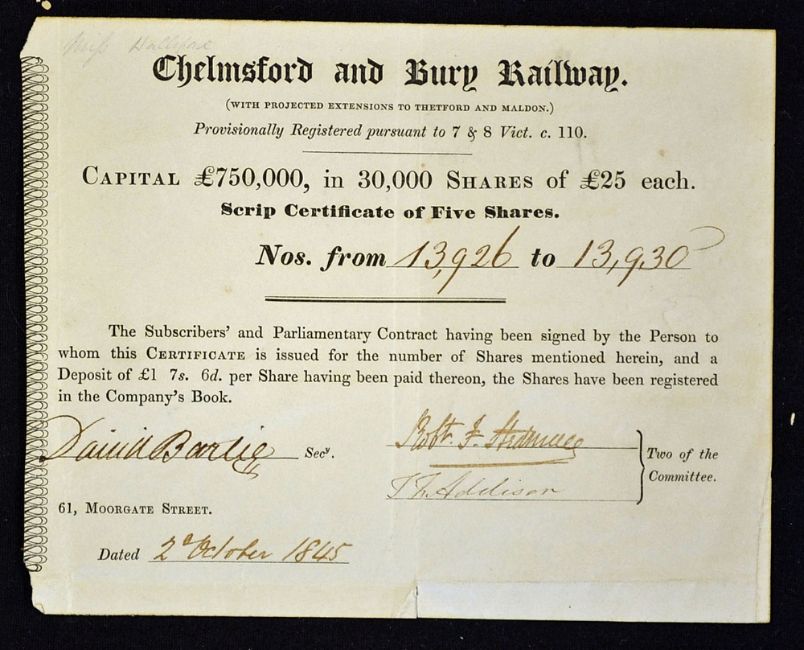 Miss Hallifax
Chelmsford and Bury Railway.
(WITH PROJECTED EXTENSIONS TO THETFORD AND MALDON.)
Provisionally Registered pursuant to 7 & 8 Vict. c. 110.
CAPITAL £750,000, in 30,000 SHARES of £25 each.
Scrip Certificate of Five Shares.
Nos. from 13,926 to 13,930
The Subscribers' and Parliamentary Contract having been signed by the Person to
whom this CERTIFICATE is issued for the number of Shares mentioned herein, and a
Deposit of £1 7s. 6d. per Share having been paid thereon, the Shares have been registered
in the Company's Book.
David Secy.
Robt. F.
Addison
Two of the
Committee.
61, MOORGATE STREET.
Dated 2d October 1845